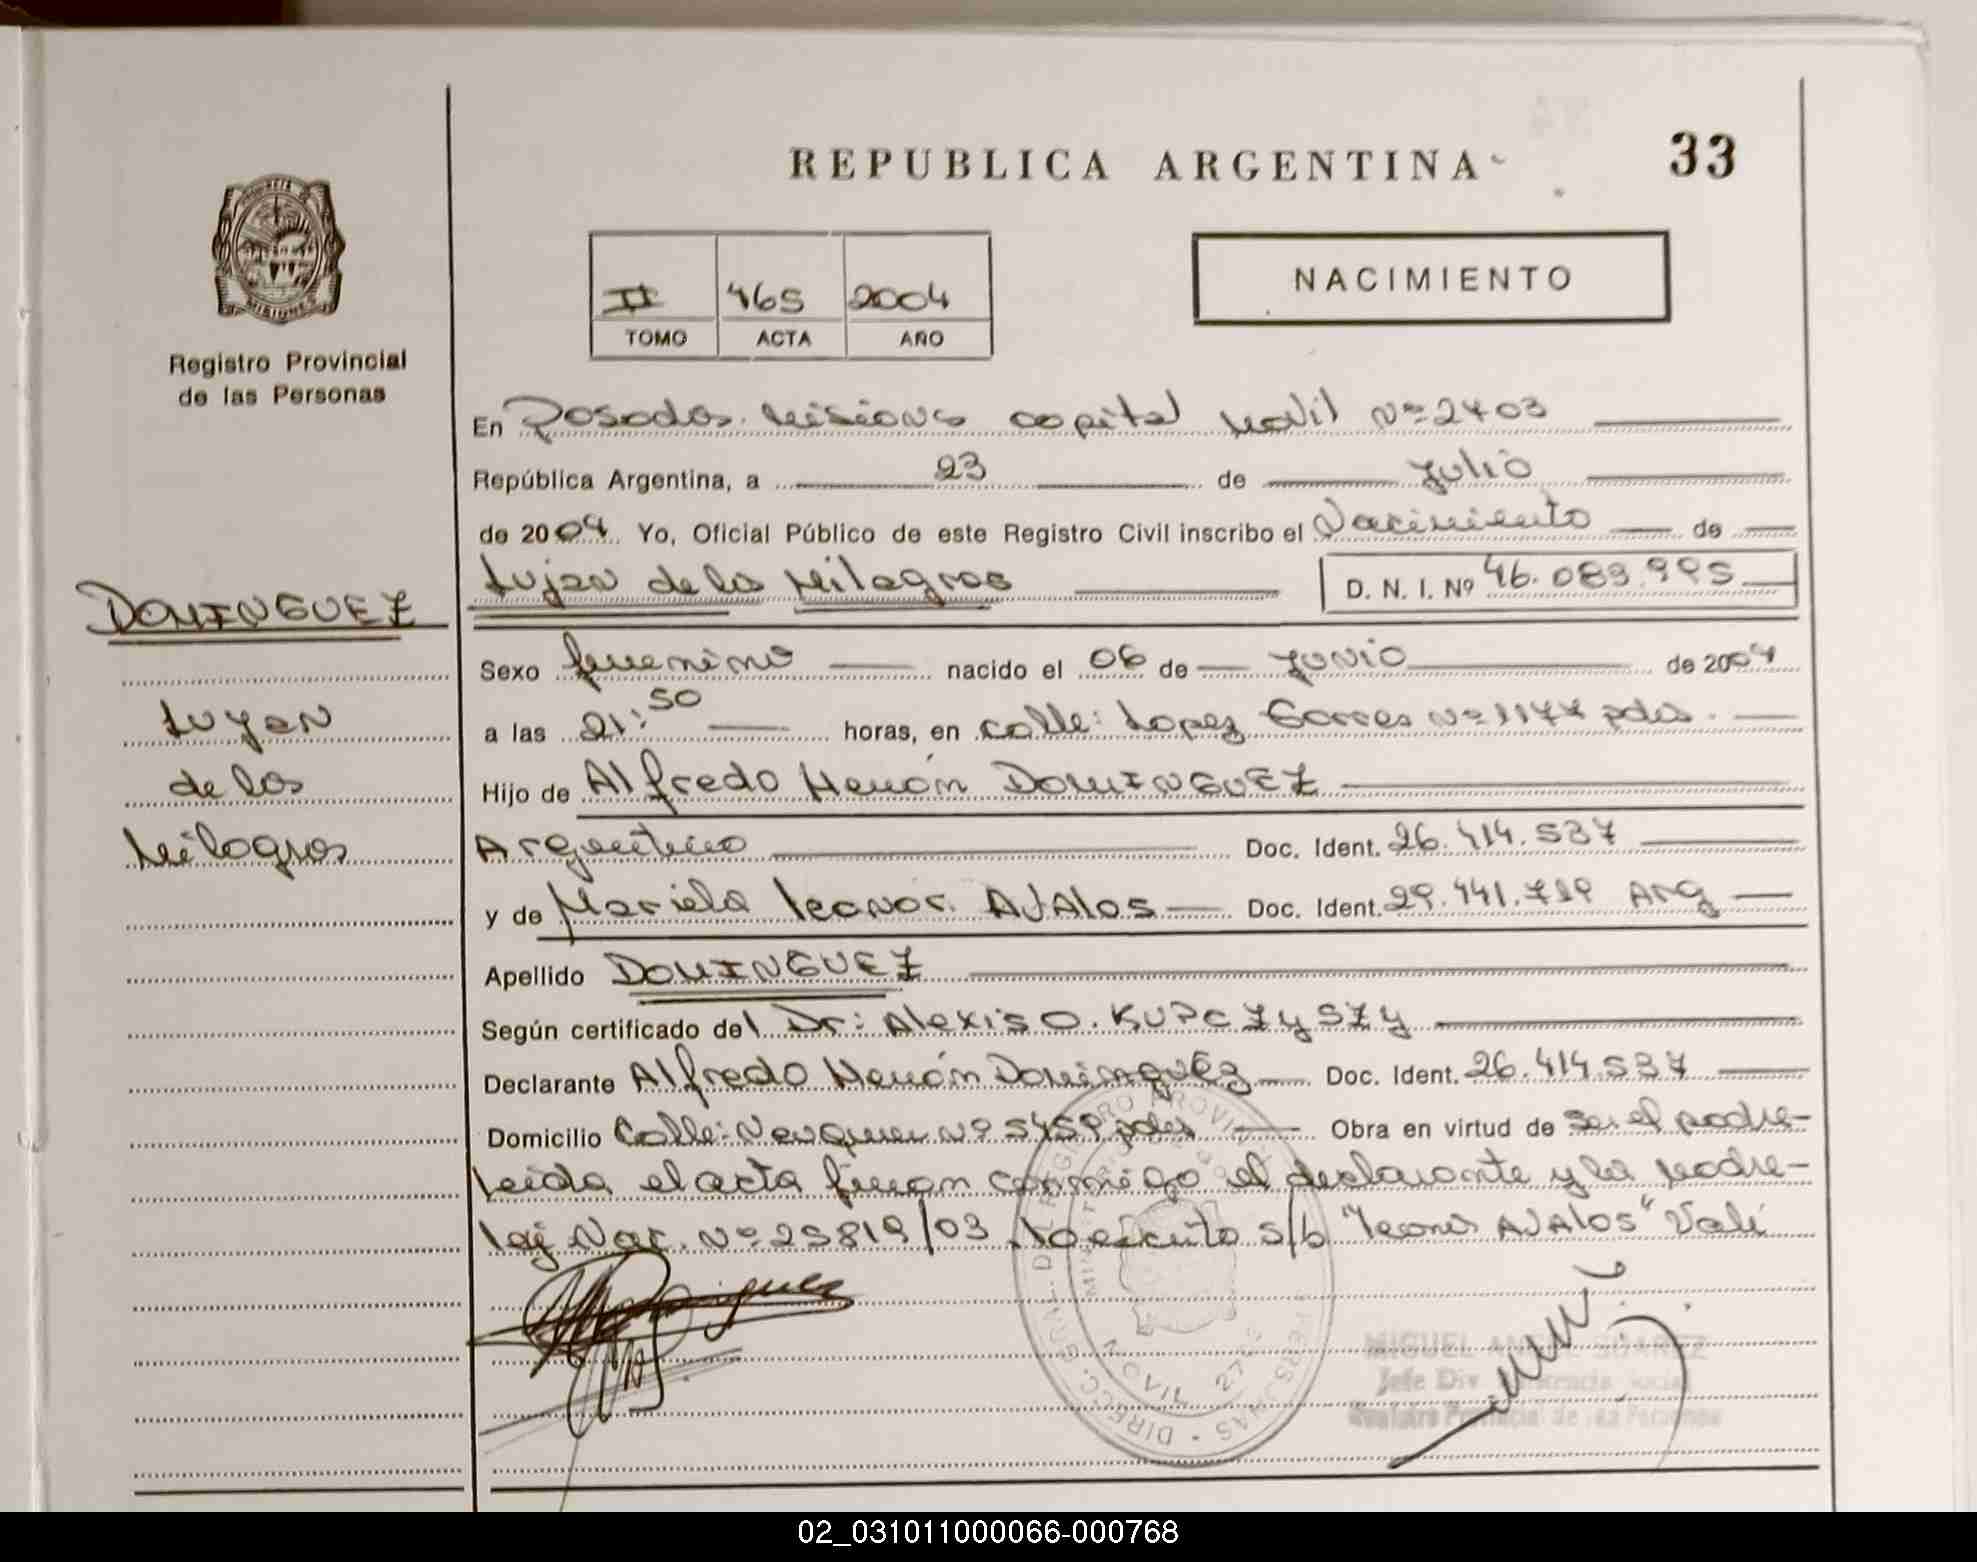 REPUBLICA ARGENTINA
33
MISIONES
Registro Provincial
de las Personas
II 465 2004
TOMO ACTA AÑO
NACIMIENTO
En Posadas. Misiones capital Movil Nº 2403
República Argentina, a 23 de Julio
de 2004 Yo, Oficial Público de este Registro Civil inscribo el Nacimiento de
DOMINGUEZ
Lujan de los Milagros D. N. I. Nº 46.089.995
Sexo femenino nacido el 06 de Junio de 2004
Lujan
a las 21:50 horas, en calle: Lopez Torres Nº 1177 pdas.
de los
Hijo de Alfredo Hernán DOMINGUEZ
Milagros
Argentino Doc. Ident. 26.414.537
y de Mariela Leonor AVALOS Doc. Ident. 29.441.719 Arg
Apellido DOMINGUEZ
Según certificado del Dr: Alexis O. KUPCZYSZY
Declarante Alfredo Hernán Dominguez Doc. Ident. 26.414.537
Domicilio Calle: Neuquen Nº 5459 pdas Obra en virtud de Ser el padre-
Leida el acta firman conmigo el declarante y la madre-
Ley Nac. Nº 25819/03. s/b "Leonor AVALOS" Vale
MIGUEL ANGEL SUAREZ
Jefe Div. Asistencia Social
Registro Provincial de las Personas
02_031011000066-000768